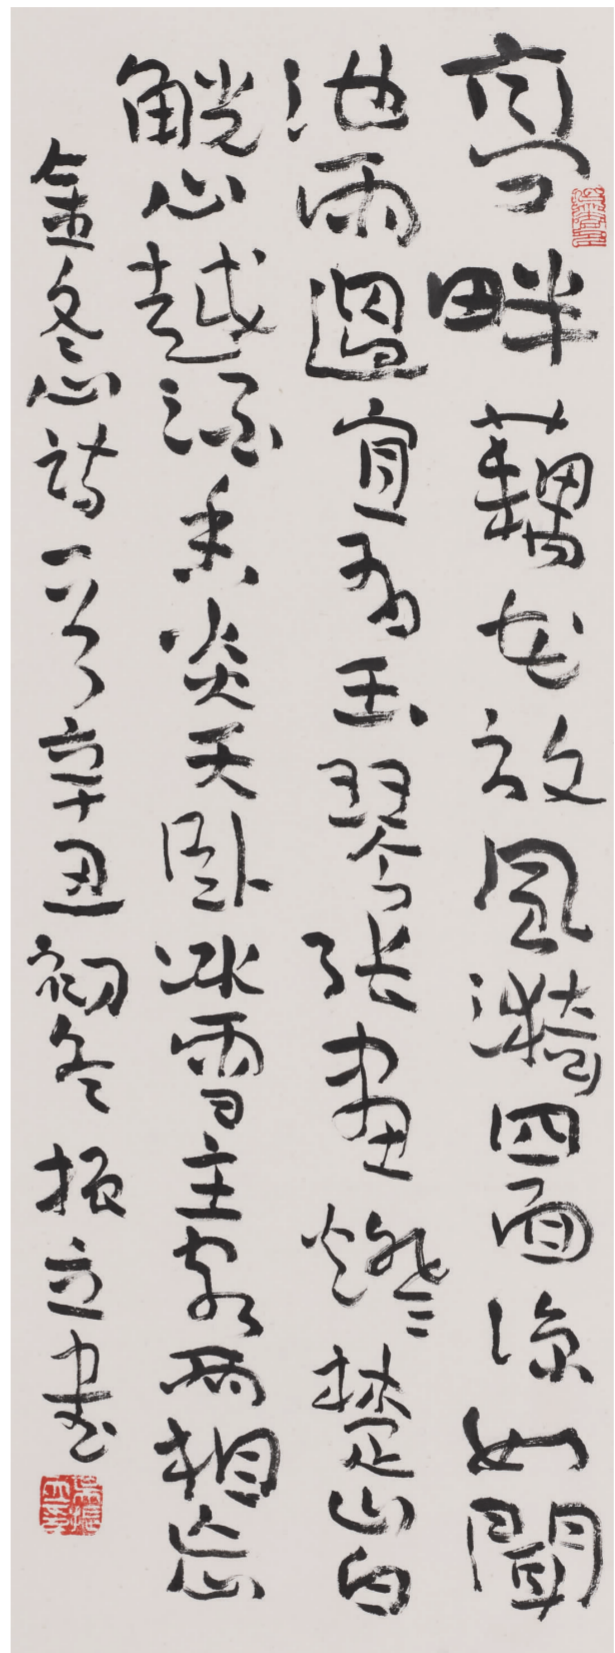 亭畔藕花放風漪四面涼如聞
池雨過宜為玉琴張畫楚山白
觥心越酒香炎天臥冰雪主客兩相忘
金冬心詩一首辛丑初冬振立書